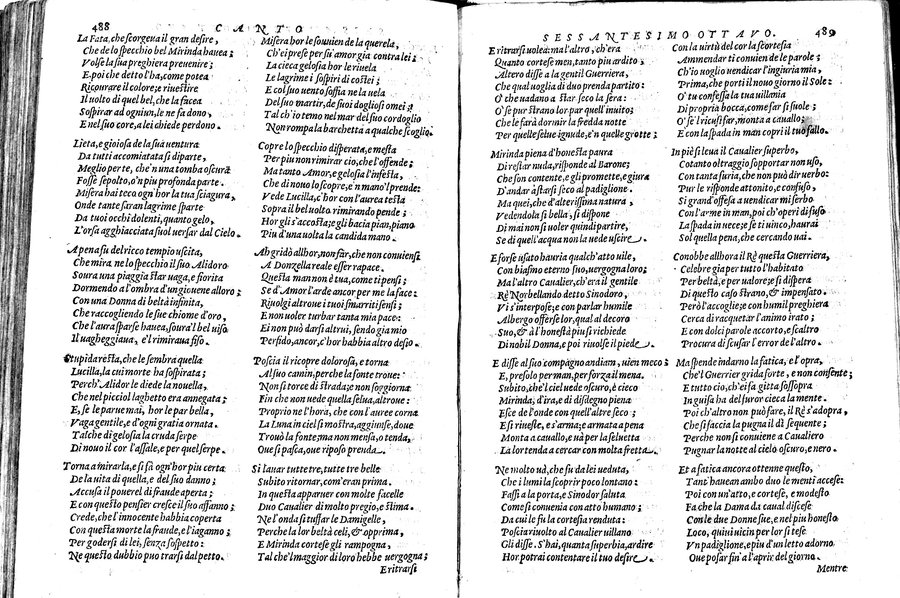 488 CANTO
La Fata, che scorgeua il gran desire,
Che de lo specchio bel Mirinda hauea;
Volse la sua preghiera preuenire;
E poi che detto l'ha, come potea
Ricourare il colore, e riuestire
Il uolto di quel bel, che la facea
Sospirar ad ogniun, le ne fa dono,
E nel suo core, a lei chiede perdono.
Lieta, e gioiosa de la sua uentura
Da tutti accomiatata si diparte,
Meglio per te, che'n una tomba oscura
Fosse sepolto, o'n piu profonda parte.
Misera hai teco ogn'hor la tua sciagura,
Onde tante saran lagrime sparte
Da tuoi occhi dolenti, quanto gelo,
L'orsa agghiacciata suol uersar dal Cielo.
A pena su del ricco tempio uscita,
Che mira ne lo specchio il suo Alidoro
Soura una piaggia star uaga, e fiorita
Dormendo a l'ombra d'un giouene alloro;
Con una Donna di beltà infinita,
Che raccogliendo le sue chiome d'oro,
Che l'aura sparse hauea, soura'l bel uiso
Il uagheggiaua, e'l rimiraua fiso.
Stupida resta, che le sembra quella
Lucilla, la cui morte ha sospirata;
Perch'Alidor le diede la nouella,
Che nel picciol laghetto era annegata;
E, se le par e mai, hor le par bella,
Vaga, gentile, e d'ogni gratia ornata.
Talche di gelosia la cruda serpe
Di nuouo il cor l'assale, e per quel serpe.
Torna a mirarla, e si fa ogn'hor piu certa
De la uita di quella, e del suo danno;
Accusa il pouerel di fraude aperta;
E con questo pensier cresce il suo affanno;
Crede, che l'innocente habbia coperta
Con questa morte la fraude, e l'inganno;
Per godersi di lei, senza sospetto:
Ne questo dubbio puo trarsi dal petto.
Misera hor le souien de la querela,
Ch'ei prese per su'amor gia contra lei;
La cieca gelosia hor le riuela
Le lagrime i sospiri di costei;
E col suo uento soffia ne la uela
Del suo martir, de suoi dogliosi omei;
Tal ch'io temo nel mar del suo cordoglio
Non rompa la barchetta a qualche scoglio.
Copre lo specchio disperata, e mesta
Per piu non rimirar cio, che l'offende;
Ma tanto Amor, e gelosia l'infesta,
Che di nouo lo scopre, e'n man o'l prende:
Vede Lucilla, c'hor con l'aurea testa
Sopra il bel uolto rimirando pende;
Hor gli s'accosta; e gli bacia pian, piano
Piu d'una uolta la candida mano.
Ah gridò allhor, non far, che non conuiensi
A Donzella reale esser rapace.
Questa man non è tua, come ti pensi;
Se d'Amor l'arde ancor per me la face:
Riuolgi altroue i tuoi smarriti sensi;
E non uoler turbar tanta mia pace:
Ei non può darsi altrui, sendo gia mio
Perfido, ancor, e'hor habbia altro desio.
Poscia il ricopre dolorosa, e torna
Al suo camin, perche la fonte troue:
Non si torce di strada; e non soggiorna
Fin che non uede quella selua, altroue:
Proprio ne l'hora, che con l'auree corna
La Luna in ciel si mostra, aggiunse, doue
Trouò la fonte; ma non mensa, o tenda,
Que si pasca, oue riposo prenda.
Si lauar tutte tre, tutte tre belle
Subito ritornar, com'eran prima.
In questa apparuer con molte facelle
Duo Caualier di molto pregio, e stima.
Ne l'onda si tuffar le Damigelle,
Perche la lor beltà celi, & opprima,
E Mirinda cortese gli rampogna,
Tal che'l maggior di loro hebbe uergogna;
Eritrarsi
SESSANTESIMOOTTAVO. 489
E ritrarsi uolea: ma l'altro, ch'era
Quanto cortese men, tanto piu ardito;
Altero disse a la gentil Guerriera,
Che qual uoglia di duo prenda partito:
O' che uadano a star seco la sera:
O' se pur strano lor par quell'inuito;
Che le farà dormir la fredda notte
Per quelle selue ignude, e'n quelle grotte;
Mirinda piena d'honesta paura
Di restar nuda, risponde al Barone;
Che son contente, e gli promette, e giura
D'andar a starsi seco al padiglione.
Ma quei, che d'altrissima natura,
Vedendola sì bella, si dispone
Di mai non si uoler quindi partire,
Se di quell'acqua non la uede uscire.
E forse usato hauria qualch'atto uile,
Con biasmo eterno suo, uergogna loro;
Ma l'altro Caualier, ch'era il gentile
Rè Norbellando detto Sinodoro,
Vi s'interpose; e con parlar humile
Albergo offerse lor, qual al decoro
Suo, & à l'honestà piu si richiede
Di nobil Donna, e poi riuolse il piede.
E disse al suo compagno andiam, uien meco;
E, preso lo per man, per forza il mena.
Subito, che'l ciel uede oscuro, e cieco
Mirinda, d'ira, e di disdegno piena
Esce de l'onde con quell'altre seco;
E si riueste, e s'arma; e armata a pena
Monta a cauallo, e uà per la seluetta
La lor tenda a cercar con molta fretta.
Ne molto uà, che su da lei ueduta,
Che i lumi la scoprir poco lontano:
Fassi a la porta, e Sinodor saluta
Come si conuenia con atto humano;
Da cui le fu la cortesia renduta:
Poscia riuolto al Caualier uillano
Gli disse. S'hai, quanta superbia, ardire
Hor potrai contentare il tuo desire.
Con la uirtù del cor la scortesia
Ammendar ti conuien de le parole;
Ch'io uoglio uendicar l'ingiuria mia,
Prima, che porti il nouo giorno il Sole:
O' tu confessa la tua uillania
Di propria bocca, come far si suole;
O' se'l ricusi far, monta a cauallo;
E con la spada in man copri il tuo fallo.
In piè si leua il Caualier superbo,
Cotanto oltraggio sopportar non uso,
Con tanta furia, che non può dir uerbo:
Pur le risponde attonito, e confuso,
Si grand'offesa a uendicar mi serbo
Con l'arme in man, poi ch'operi di fuso
La spada in uece; e se ti uinco, haurai
Sol quella pena, che cercando uai.
Conobbe allhora il Rè questa Guerriera,
Celebre gia per tutto l'habitato
Per beltà, e per ualore; e si dispera
Di questo caso strano, & impensato.
Però l'accoglie, e con humil preghiera
Cerca di racquetar l'animo irato;
E con dolci parole accorto, e scaltro
Procura di scusar l'error de l'altro.
Ma spende indarno la fatica, e l'opra,
Che'l Guerrier grida forte, e non consente;
E tutto cio, ch'ei fa gitta sossopra
In guisa ha del furor cieca la mente.
Poi ch'altro non può fare, il Rè s'adopra,
Che si faccia la pugna il dì sequente;
Perche non si conuiene a Caualiero
Pugnar la notte al cielo oscuro, e nero.
Et a fatica ancora ottenne questo,
Tant'haueau ambo duo le menti accese:
Poi con un'atto, e cortese, e modesto
Fa che la Dama da caual discese
Con le due Donne sue, e nel piu honesto
Loco, quiui uicin per lor si tese
Vn padiglione, e piu d'un letto adorno
Oue posar fin'al'aprir del giorno.
Mentre